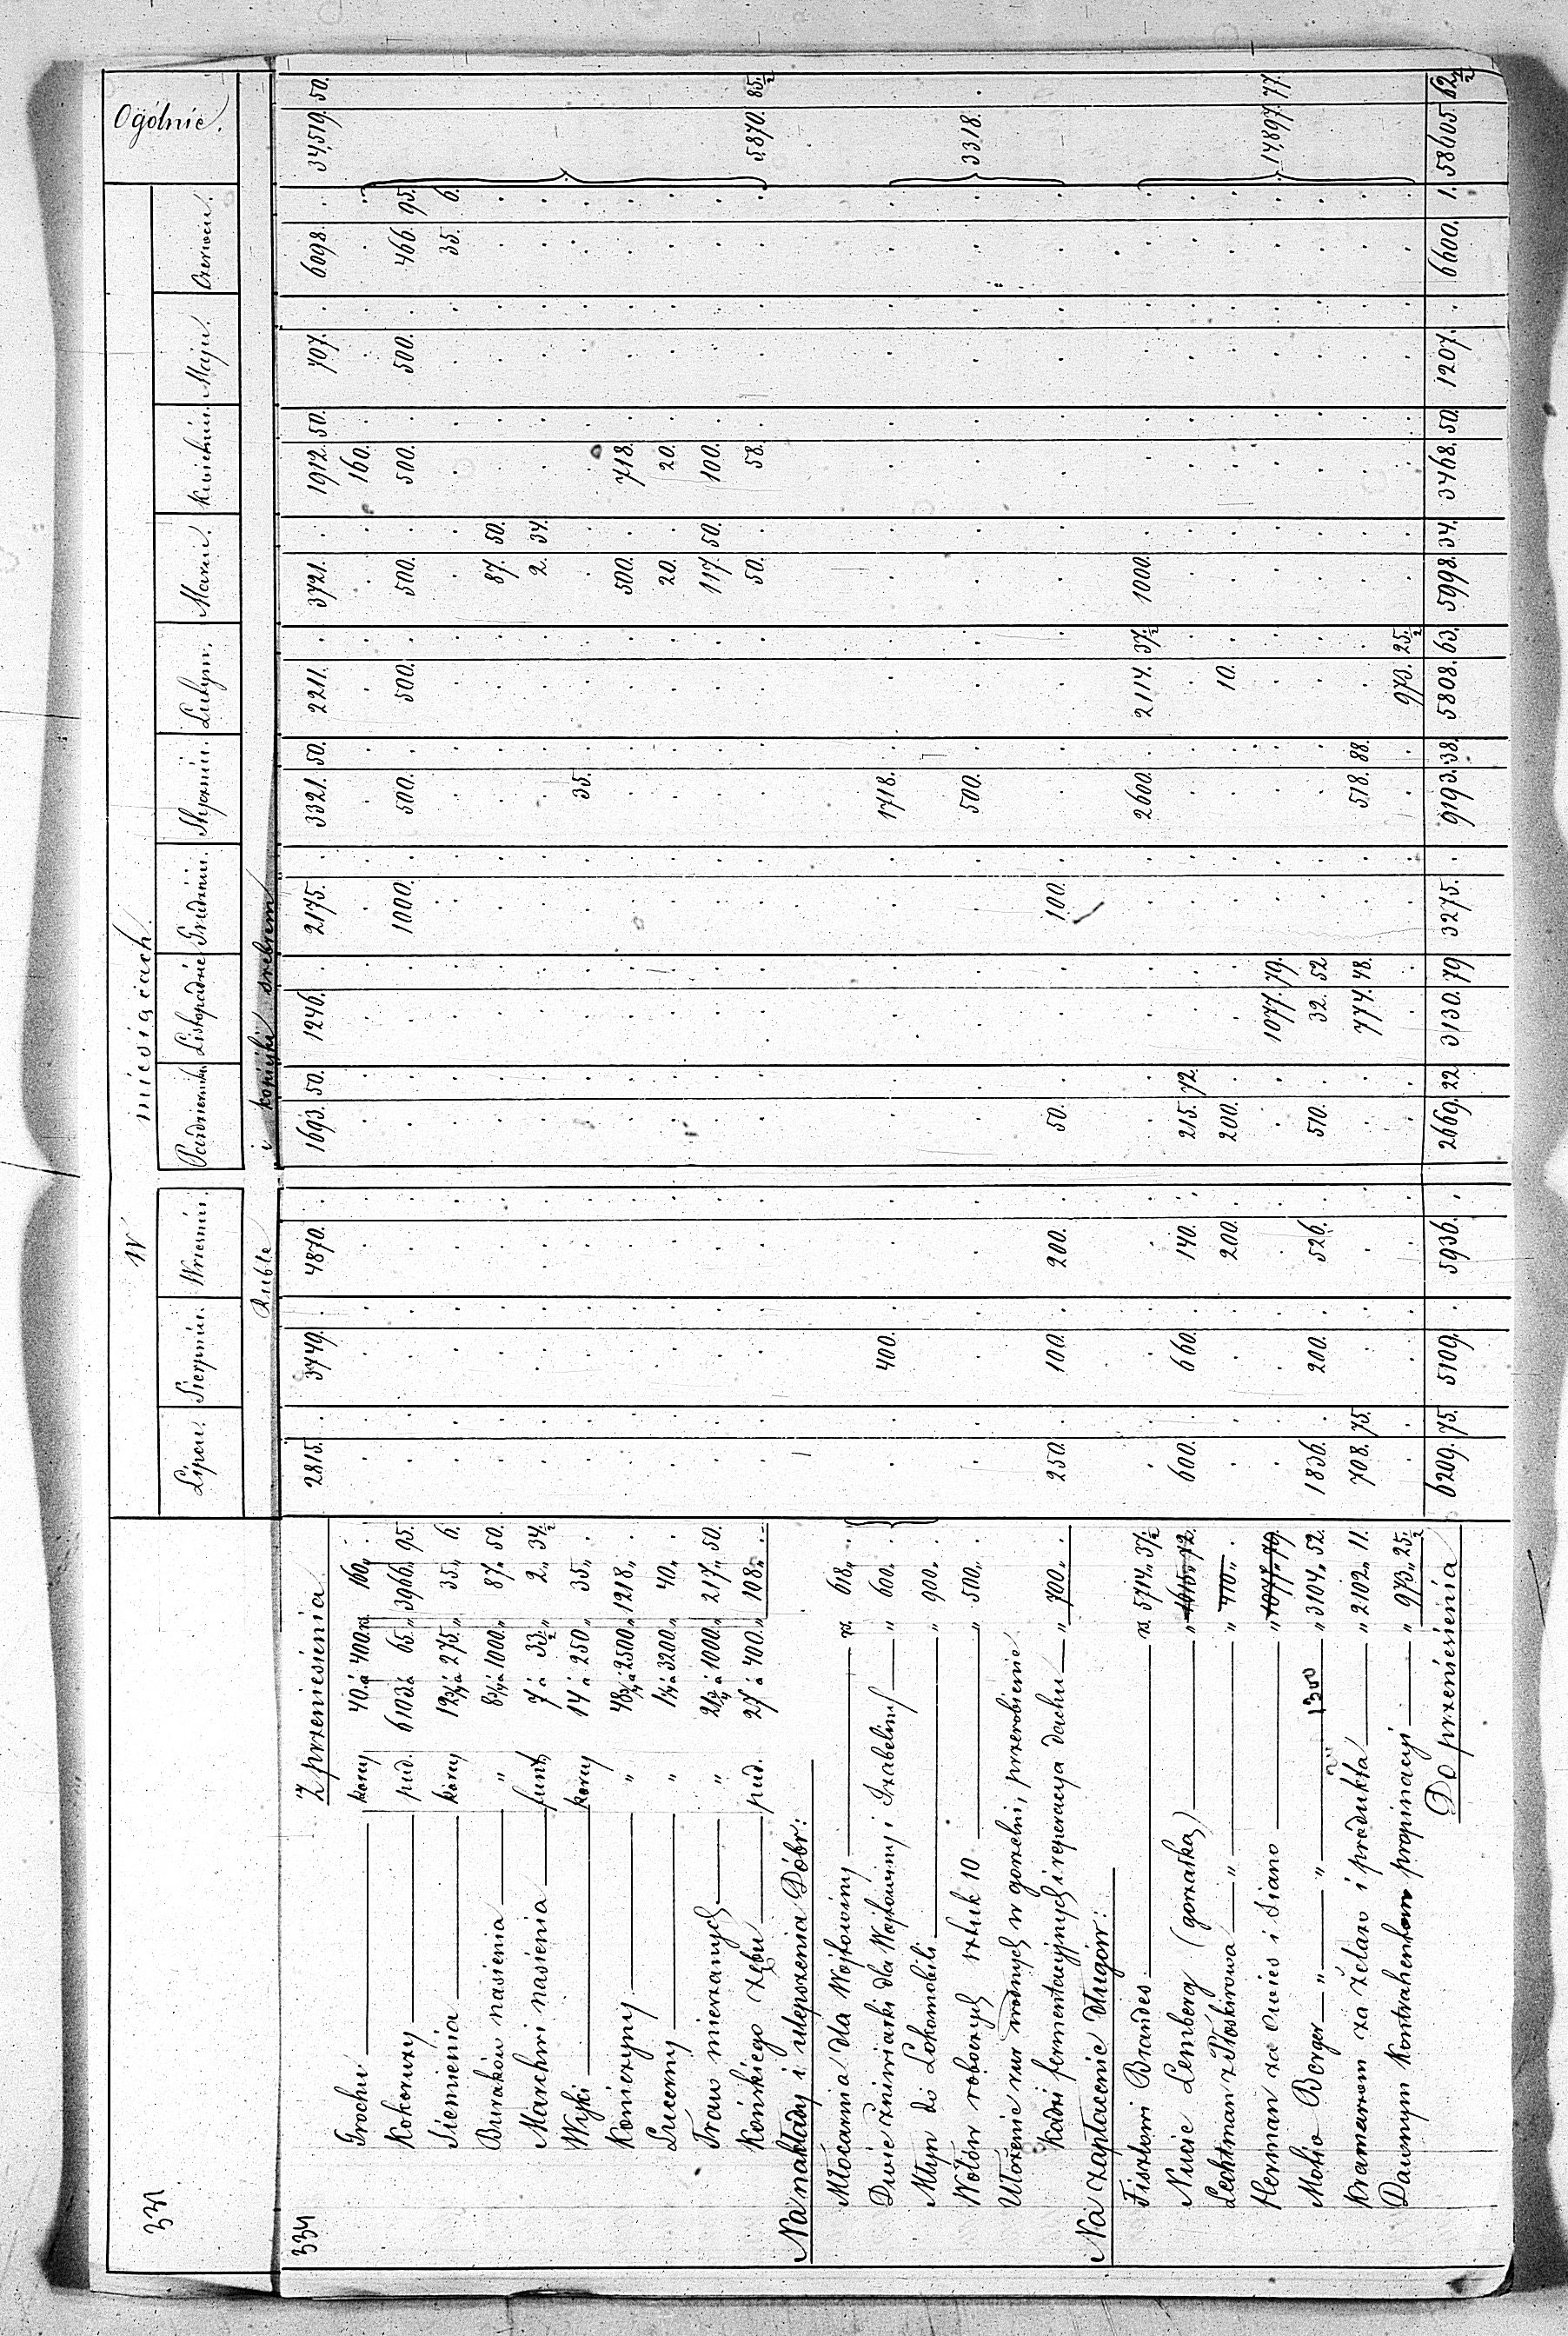 331
W miesiącach.
Ogólnie.
Lipcu. Sierpniu. Wrześniu. Październiku Listopadzie Grudniu. Styczniu. Lutym. Marcu. Kwietniu. Maju. Czerwcu.
Ruble i kopiejki srebrem
334
Z przeniesienia 2815. . 3749. . 4870. . 1693. 50. 1246. . 2175. . 3321. 50. 2211. . 3721. . 1912. 50. 707. . 6098. . 34,519. 50.
Grochu korcy 40. á 400. rs. 160 „ . 160.
Kokoruzy pud. 6103 á 65 „ 3966. 95. 1000. 500. 500. 500. 500. 500. 466. 95.
Siemienia korcy 12 3/4 á 275 „ 35 „ 6. 35. 6.
Buraków nasienia „ 8 3/4 á 1000 „ 87 „ 50. 87. 50.
Marchwi nasienia funt. 7 á 33 1/2 „ 2 „ 34 1/2 2. 34.
Wyki korcy 14 á 250 „ 35 „ . 35.
Koniczyny „ 48 3/4 á 2500 „ 1218 „ . 500. 718.
Lucerny „ 1 1/4 á 3200 „ 40 „ . 20. 20.
Traw mieszanych „ 21 3/4 á 1000 „ 217 „ 50. 117. 50. 100.
Końskiego zębu pud. 27 á 400. „ 108 „ . 50. 58. 5,870. 85 1/2
Na nakłady i ulepszenia Dóbr:
Młócarnia dla Wojtowiny rs. 618 „ .
Dwie żniwiarki dla Wojtowiny i Izabelin „ 600 „ . 400. 1718.
Młyn do Lokomobili „ 900 „ .
Wołów roboczych sztuk 10 „ 500 „ . 500. 3318. .
Ułożenie rur wodnych w gorzelni, przerobienie
kadzi fermentacyjnych i reperacya dachu „ 700 „ . 250. 100. 200. 50. 100.
Na zapłacenie długów:
Fiszlowi Brandes rs. 5714 „ 37 1/2 2600. 2114. 37 1/2 1000.
Nucie Lemberg (gorzałka) „ 1615 „ 72. 600. 660. 140. 215. 72.
Lechtman z Płoskirowa „ 410 „ . 200. 200. 10.
Herman za owies i siano „ 1077 „ 79. 1077. 79. 14,897. 77.
Mosio Berger „ „ 1300 „ 3104 „ 52. 1836. 200. 526. 510. 32. 52
Kramarzom za żelazo i produkta „ 2102 „ 11. 708. 75. 774. 48. 518. 88.
Dawnym Kontrahentom propinacyi „ 973 „ 25 1/2 973. 25 1/2
Do przeniesienia 6209. 75. 5109. . 5936. . 2669. 22 3130. 79 3275. . 9193. 38. 5808. 63. 5998. 34. 3468. 50. 1207. . 6600. 1. 58605. 62 1/2